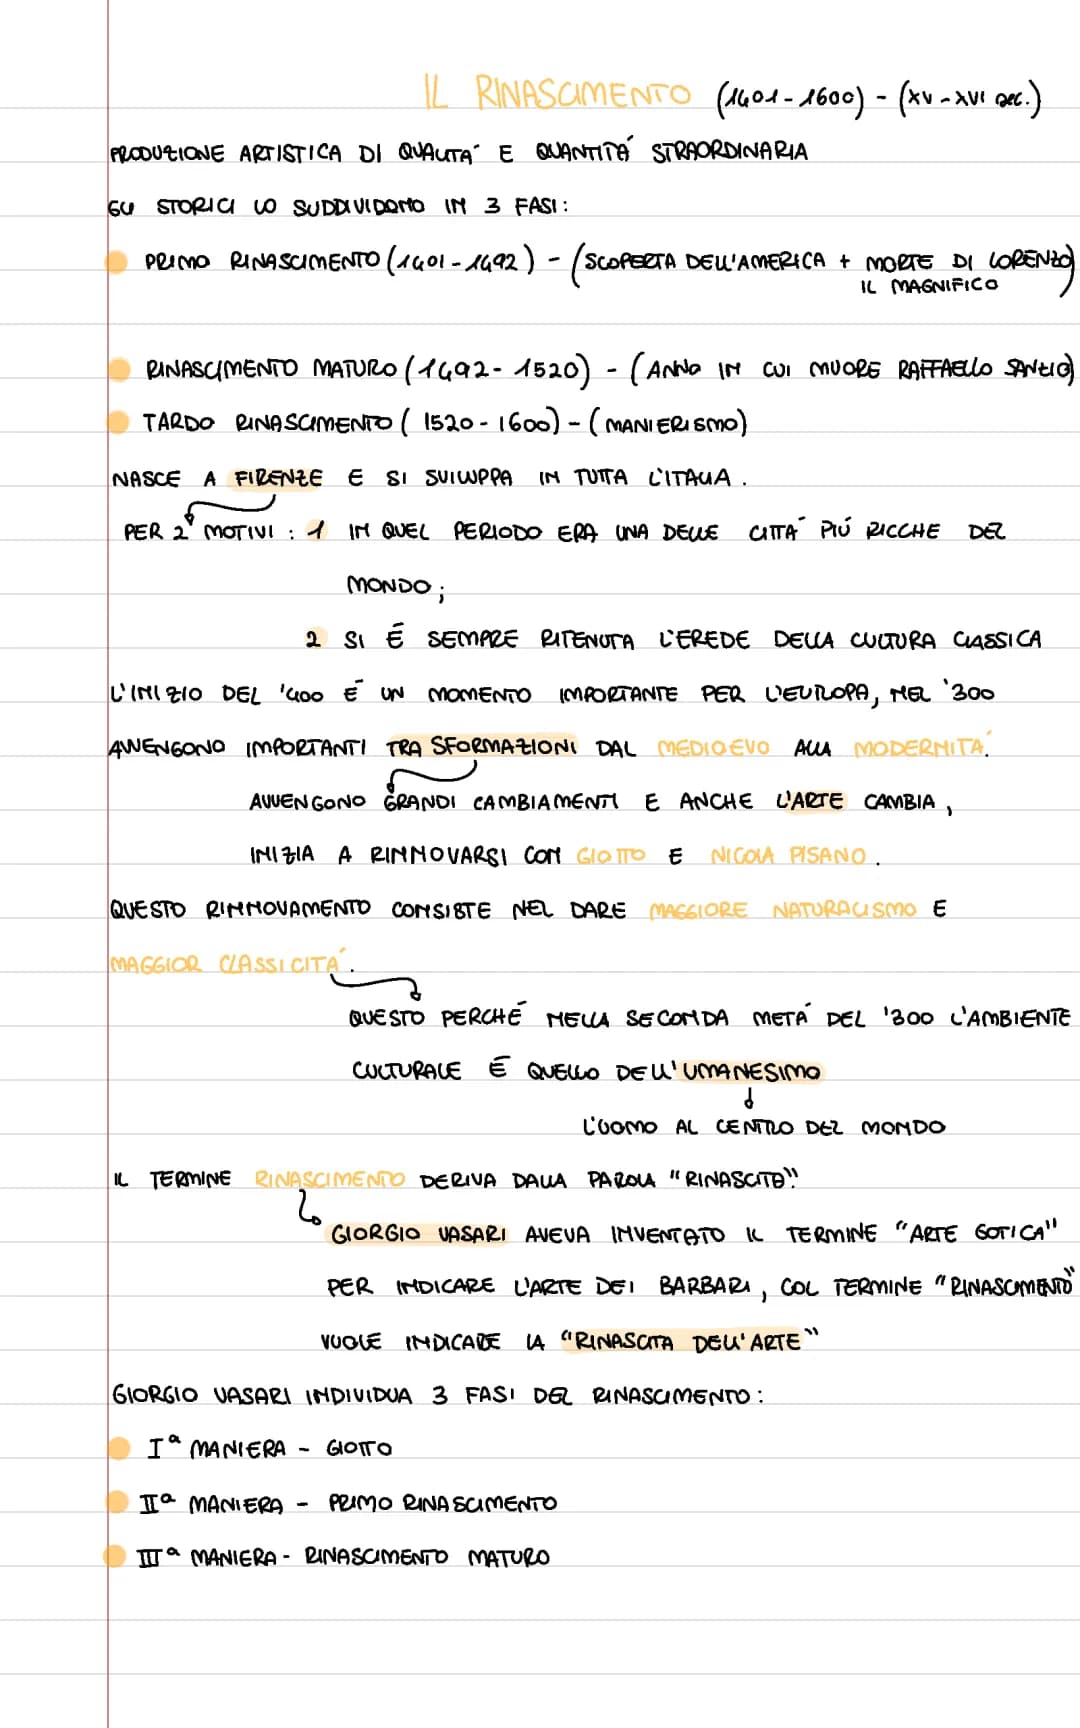 IL RINASCIMENTO (1401-1600) - (XV-XVI sec.)
PRODUZIONE ARTISTICA DI QUALITÁ E QUANTITÁ STRAORDINARIA
GLI STORICI LO SUDDIVIDONO IN 3 FASI:
PRIMO RINASCIMENTO (1401-1492) - (SCOPERTA DELL'AMERICA + MORTE DI LORENZO
IL MAGNIFICO)
RINASCIMENTO MATURO (1492-1520) - (ANNO IN CUI MUORE RAFFAELLO SANZIO)
TARDO RINASCIMENTO (1520-1600) - (MANIERISMO)
NASCE A FIRENZE E SI SVILUPPA IN TUTTA L'ITALIA.
PER 2 MOTIVI: 1 IN QUEL PERIODO ERA UNA DELLE CITTÁ PIÚ RICCHE DEL
MONDO;
2 SI É SEMPRE RITENUTA L'EREDE DELLA CULTURA CLASSICA
L'INIZIO DEL '400 É UN MOMENTO IMPORTANTE PER L'EUROPA, NEL '300
AVVENGONO IMPORTANTI TRASFORMAZIONI DAL MEDIOEVO ALLA MODERNITÁ.
AVVENGONO GRANDI CAMBIAMENTI E ANCHE L'ARTE CAMBIA,
INIZIA A RINNOVARSI CON GIOTTO E NICOLA PISANO.
QUESTO RINNOVAMENTO CONSISTE NEL DARE MAGGIORE NATURALISMO E
MAGGIOR CLASSICITÁ.
QUESTO PERCHÉ NELLA SECONDA METÁ DEL '300 L'AMBIENTE
CULTURALE É QUELLO DELL'UMANESIMO
L'UOMO AL CENTRO DEL MONDO
IL TERMINE RINASCIMENTO DERIVA DALLA PAROLA "RINASCITA"
GIORGIO VASARI AVEVA INVENTATO IL TERMINE "ARTE GOTICA"
PER INDICARE L'ARTE DEI BARBARI, COL TERMINE "RINASCIMENTO"
VUOLE INDICARE LA "RINASCITA DELL'ARTE"
GIORGIO VASARI INDIVIDUA 3 FASI DEL RINASCIMENTO:
Iª MANIERA - GIOTTO
IIª MANIERA - PRIMO RINASCIMENTO
IIIª MANIERA - RINASCIMENTO MATURO